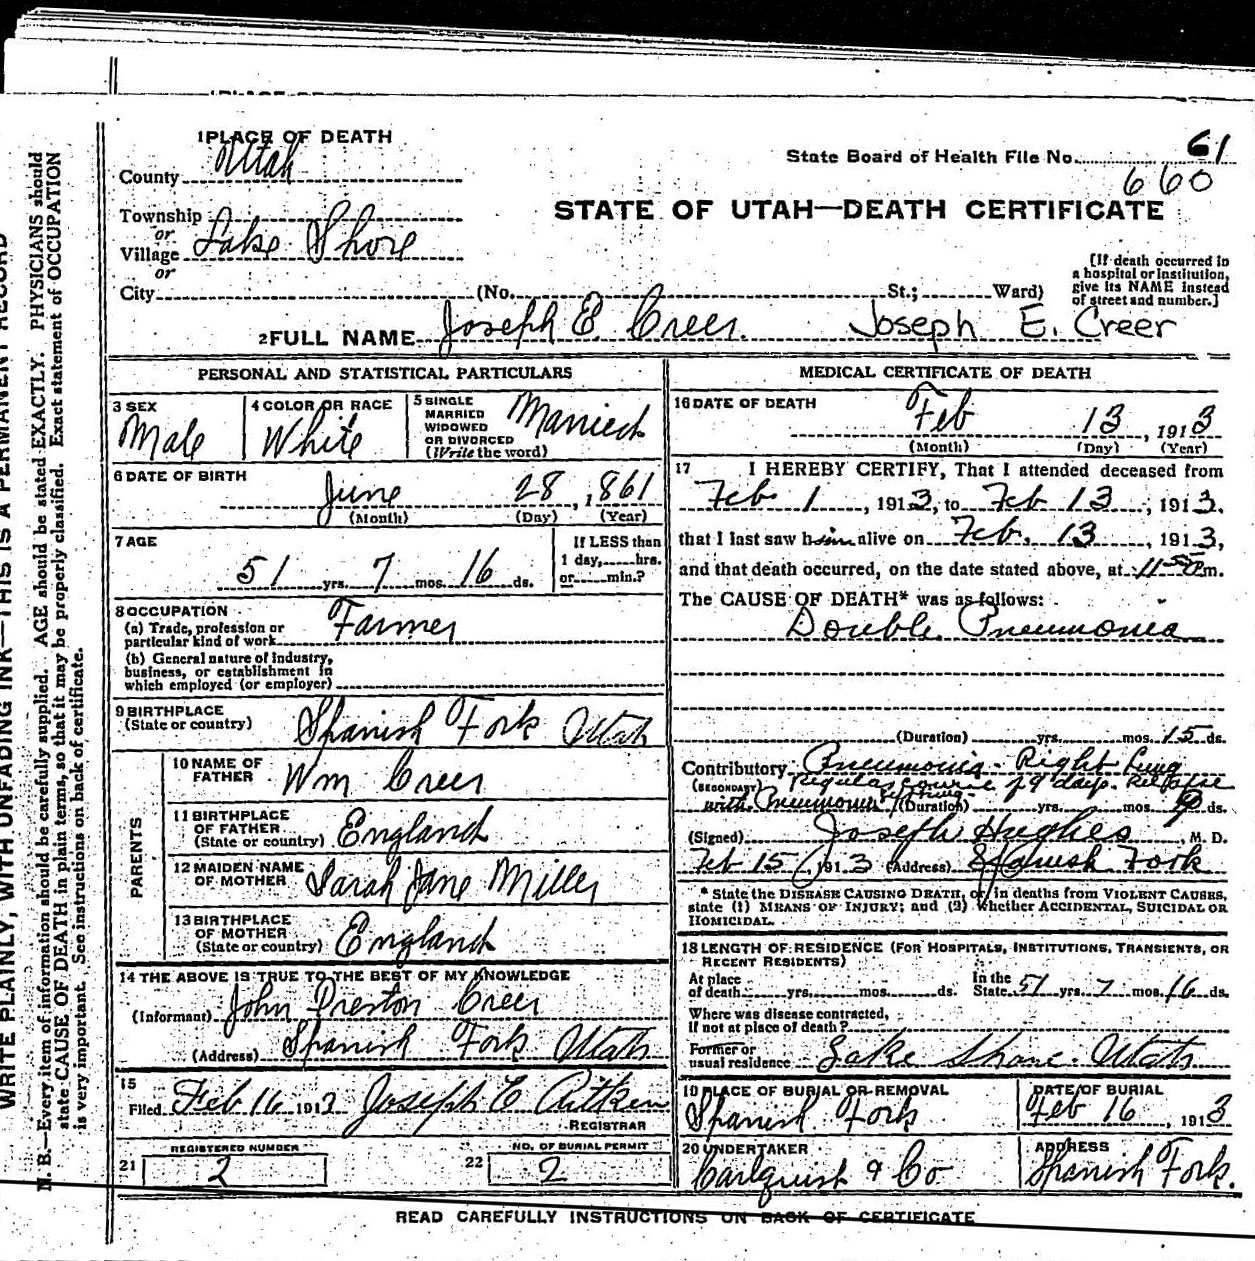 1 PLACE OF DEATH
County Utah
State Board of Health File No. 61
660
STATE OF UTAH—DEATH CERTIFICATE
Township
or
Village Lake Shore
or
City (No. St.; Ward)
[If death occurred in
a hospital or institution,
give its NAME instead
of street and number.]
2 FULL NAME Joseph E. Creer. Joseph E. Creer
PERSONAL AND STATISTICAL PARTICULARS
3 SEX
Male
4 COLOR OR RACE
White
5 SINGLE
MARRIED
WIDOWED
OR DIVORCED
(Write the word)
Married
6 DATE OF BIRTH
June 28, 1861
(Month) (Day) (Year)
7 AGE
51 yrs. 7 mos. 16 ds.
If LESS than
1 day, hrs.
or min.?
8 OCCUPATION
(a) Trade, profession or
particular kind of work Farmer
(b) General nature of industry,
business, or establishment in
which employed (or employer)
9 BIRTHPLACE
(State or country) Spanish Fork Utah
PARENTS
10 NAME OF
FATHER Wm Creer
11 BIRTHPLACE
OF FATHER
(State or country) England
12 MAIDEN NAME
OF MOTHER Sarah Jane Miller
13 BIRTHPLACE
OF MOTHER
(State or country) England
14 THE ABOVE IS TRUE TO THE BEST OF MY KNOWLEDGE
(Informant) John Preston Creer
(Address) Spanish Fork Utah
15
Filed Feb 16 1913 Joseph E Aitken
REGISTRAR
REGISTERED NUMBER
21 2
NO. OF BURIAL PERMIT
22 2
MEDICAL CERTIFICATE OF DEATH
16 DATE OF DEATH
Feb 13, 1913
(Month) (Day) (Year)
17 I HEREBY CERTIFY, That I attended deceased from
Feb 1, 1913, to Feb 13, 1913,
that I last saw him alive on Feb. 13, 1913,
and that death occurred, on the date stated above, at 11 50 P m.
The CAUSE OF DEATH* was as follows:
Double Pneumonia
(Duration) yrs. mos. 15 ds.
Contributory Pneumonia - Right Lung
(SECONDARY) Regular course of 9 days. Relapse
with Pneumonia (Duration) yrs. mos. ds.
(Signed) Joseph Hughes, M. D.
Feb 15, 1913 (Address) Spanish Fork
* State the DISEASE CAUSING DEATH, or in deaths from VIOLENT CAUSES,
state (1) MEANS OF INJURY; and (2) whether ACCIDENTAL, SUICIDAL OR
HOMICIDAL.
18 LENGTH OF RESIDENCE (FOR HOSPITALS, INSTITUTIONS, TRANSIENTS, OR
RECENT RESIDENTS)
At place
of death yrs. mos. ds.
In the
State 51 yrs. 7 mos. 16 ds.
Where was disease contracted,
if not at place of death?
Former or
usual residence Lake Shore. Utah
19 PLACE OF BURIAL OR REMOVAL
Spanish Fork
DATE OF BURIAL
Feb 16, 1913
20 UNDERTAKER
Carlquist & Co
ADDRESS
Spanish Fork.
READ CAREFULLY INSTRUCTIONS ON BACK OF CERTIFICATE
WRITE PLAINLY, WITH UNFADING INK—THIS IS A PERMANENT RECORD
N. B.—Every item of information should be carefully supplied. AGE should be stated EXACTLY. PHYSICIANS should
state CAUSE OF DEATH in plain terms, so that it may be properly classified. Exact statement of OCCUPATION
is very important. See instructions on back of certificate.